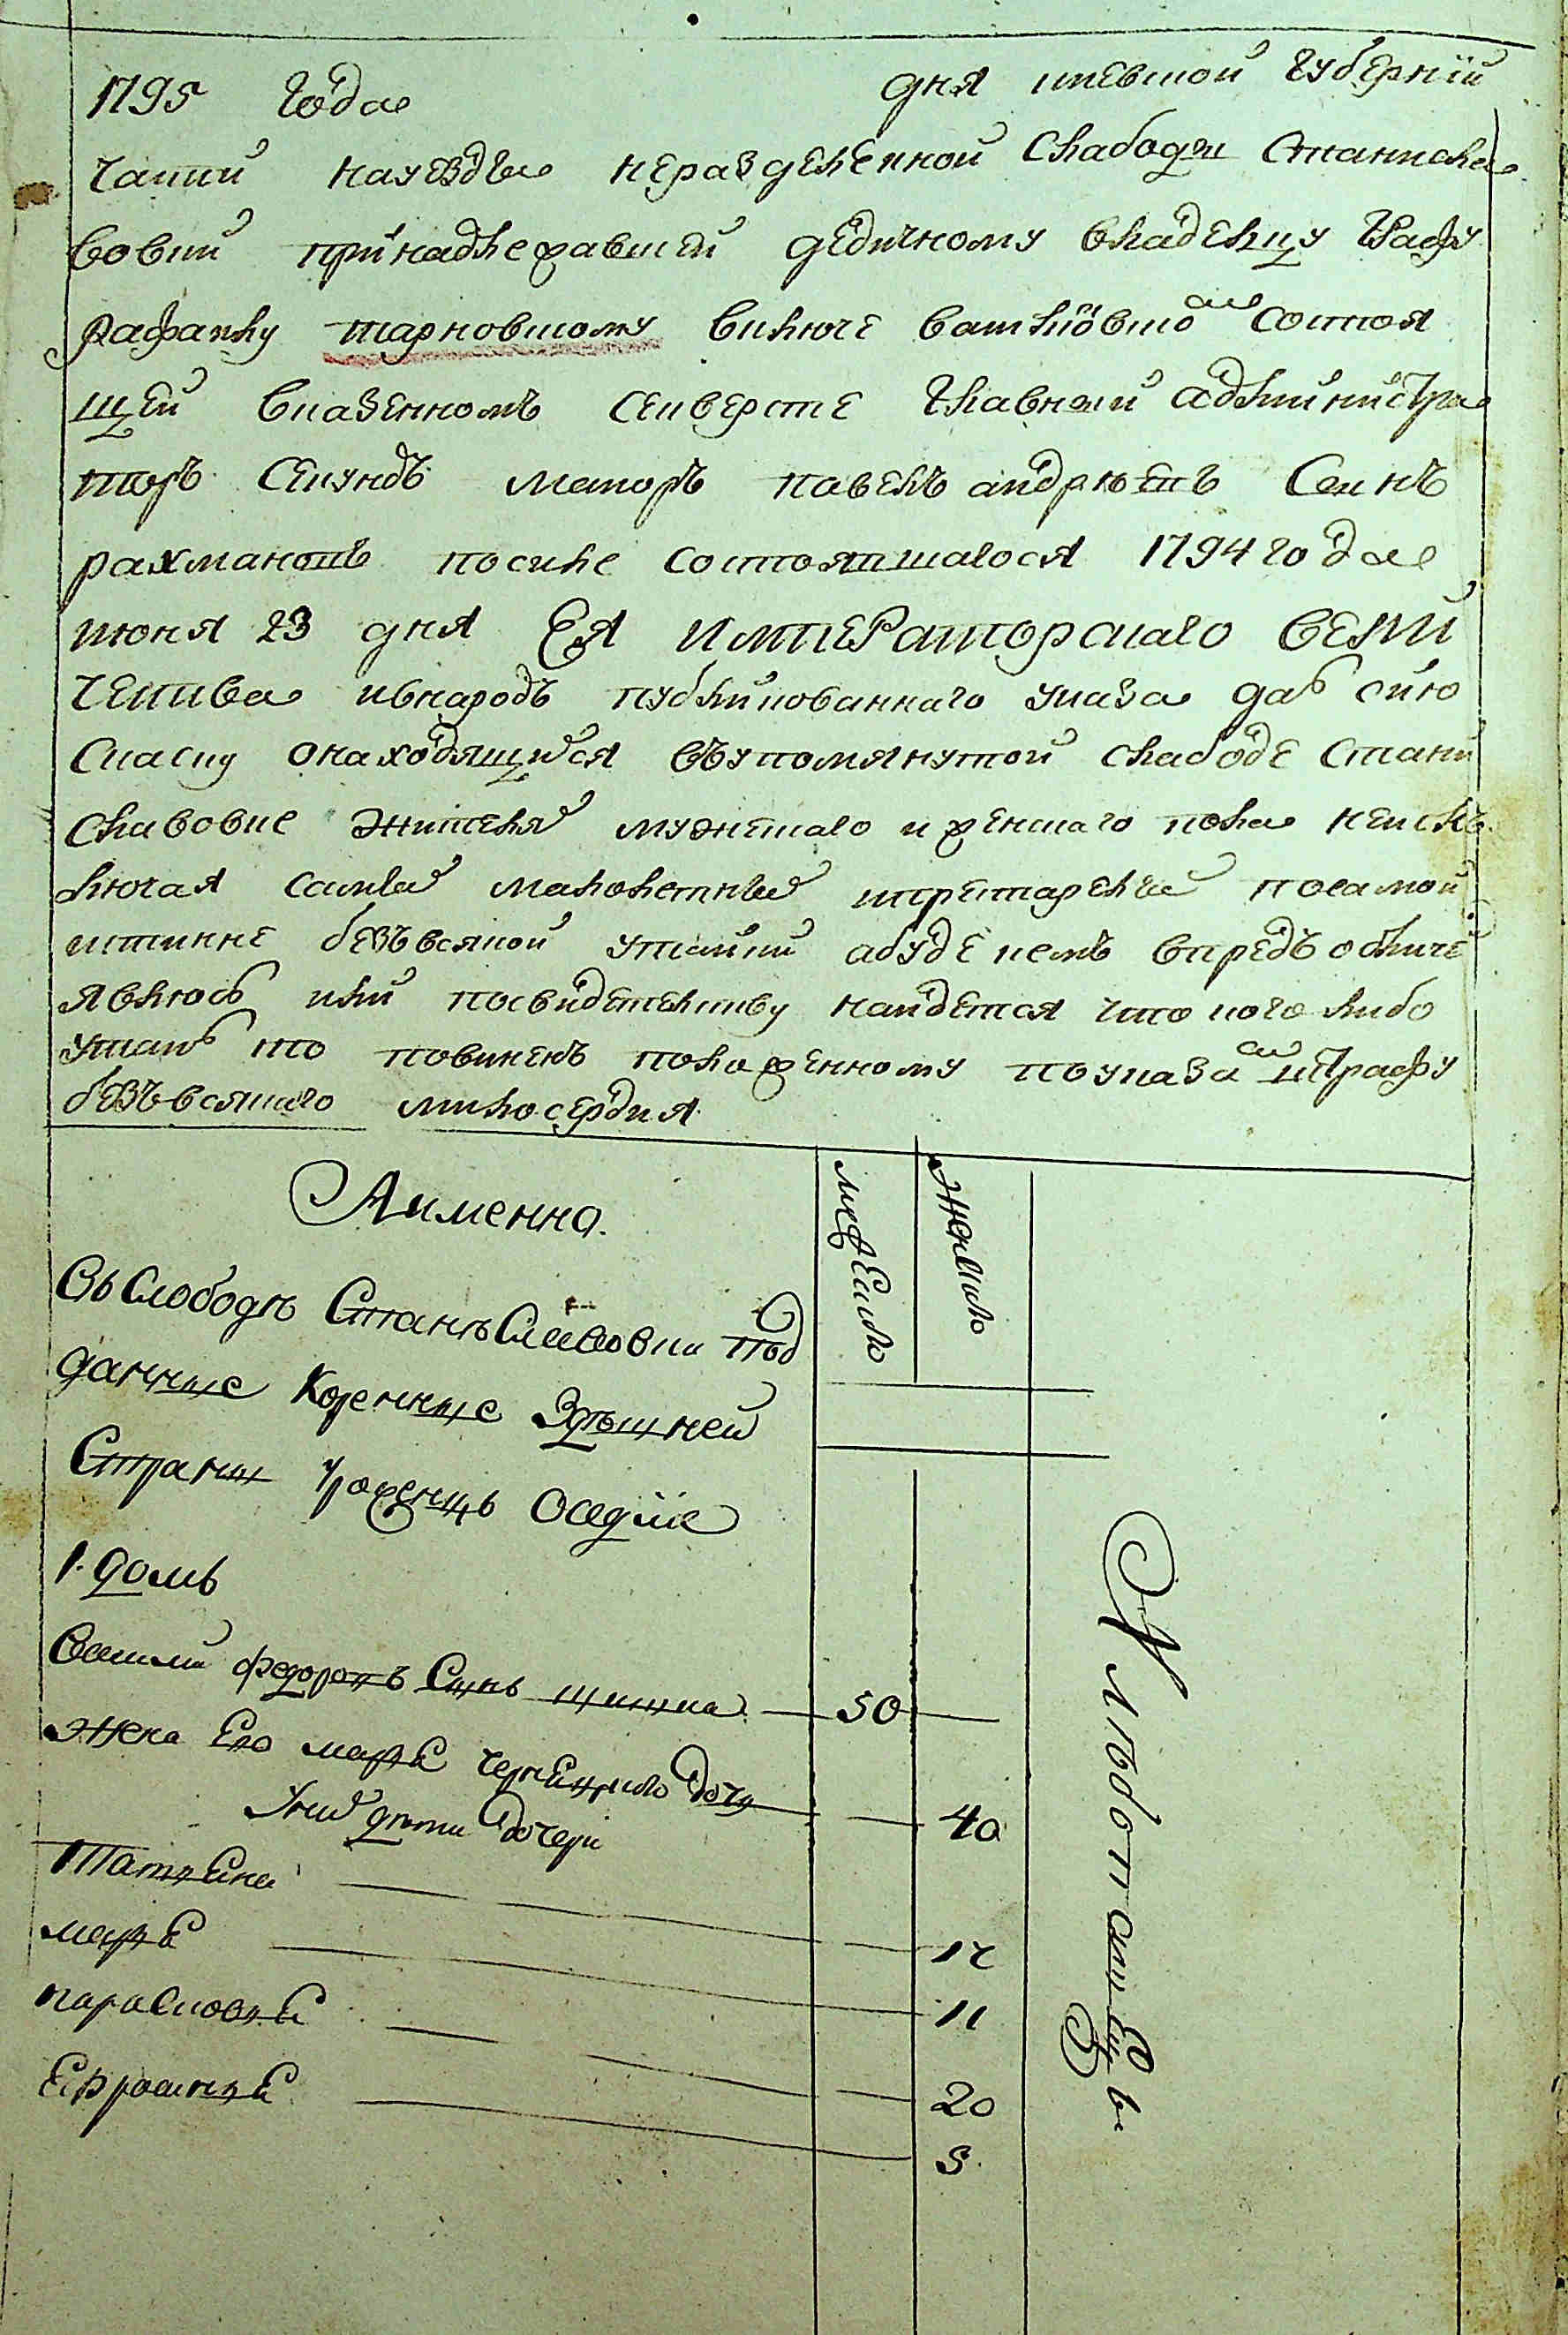 1795 Года дня киевской Губернїи
части науездъ неразделенной Слабоды Станисла
вовки принадлежавшей дедичному владельцу Графу
рафаилу тарновскому включе ваткїовско състоя
щей вказенномъ секверстѣ Главной администра
торъ секундъ маиоръ павелъ андреевъ Сынъ
рахмановъ посиле состоявшагося 1794 года
июня 23 дня Ея императорскаго вели
чества ивнародъ публикованнаго указа далъ сию
скаску онаходящихся въупомянутой слабоде стани
славовке жителях мужескаго и женскаго пола неиск
лючая самых малолетных ипрестарелых посамой
истинне безъвсякой утайки абуде кемъ впредь обличе
явлюсь или посвидетелству найдется что кого либо
утаилъ то повиненъ положенному поуказа штрафу
безъвсякаго милосердия
Аименно.
мужеско
женско
Въ слободѣ Станѣславовки под
данные Коренные Здѣшней
Страны уроженцы оседлые
1. домъ
Василий федоровъ Сынъ шишка 50
Жена Его маря дочь 40
Уних дѣти дочери
Татяна 12
маря 11
парасковя 20
Ефросиня 5